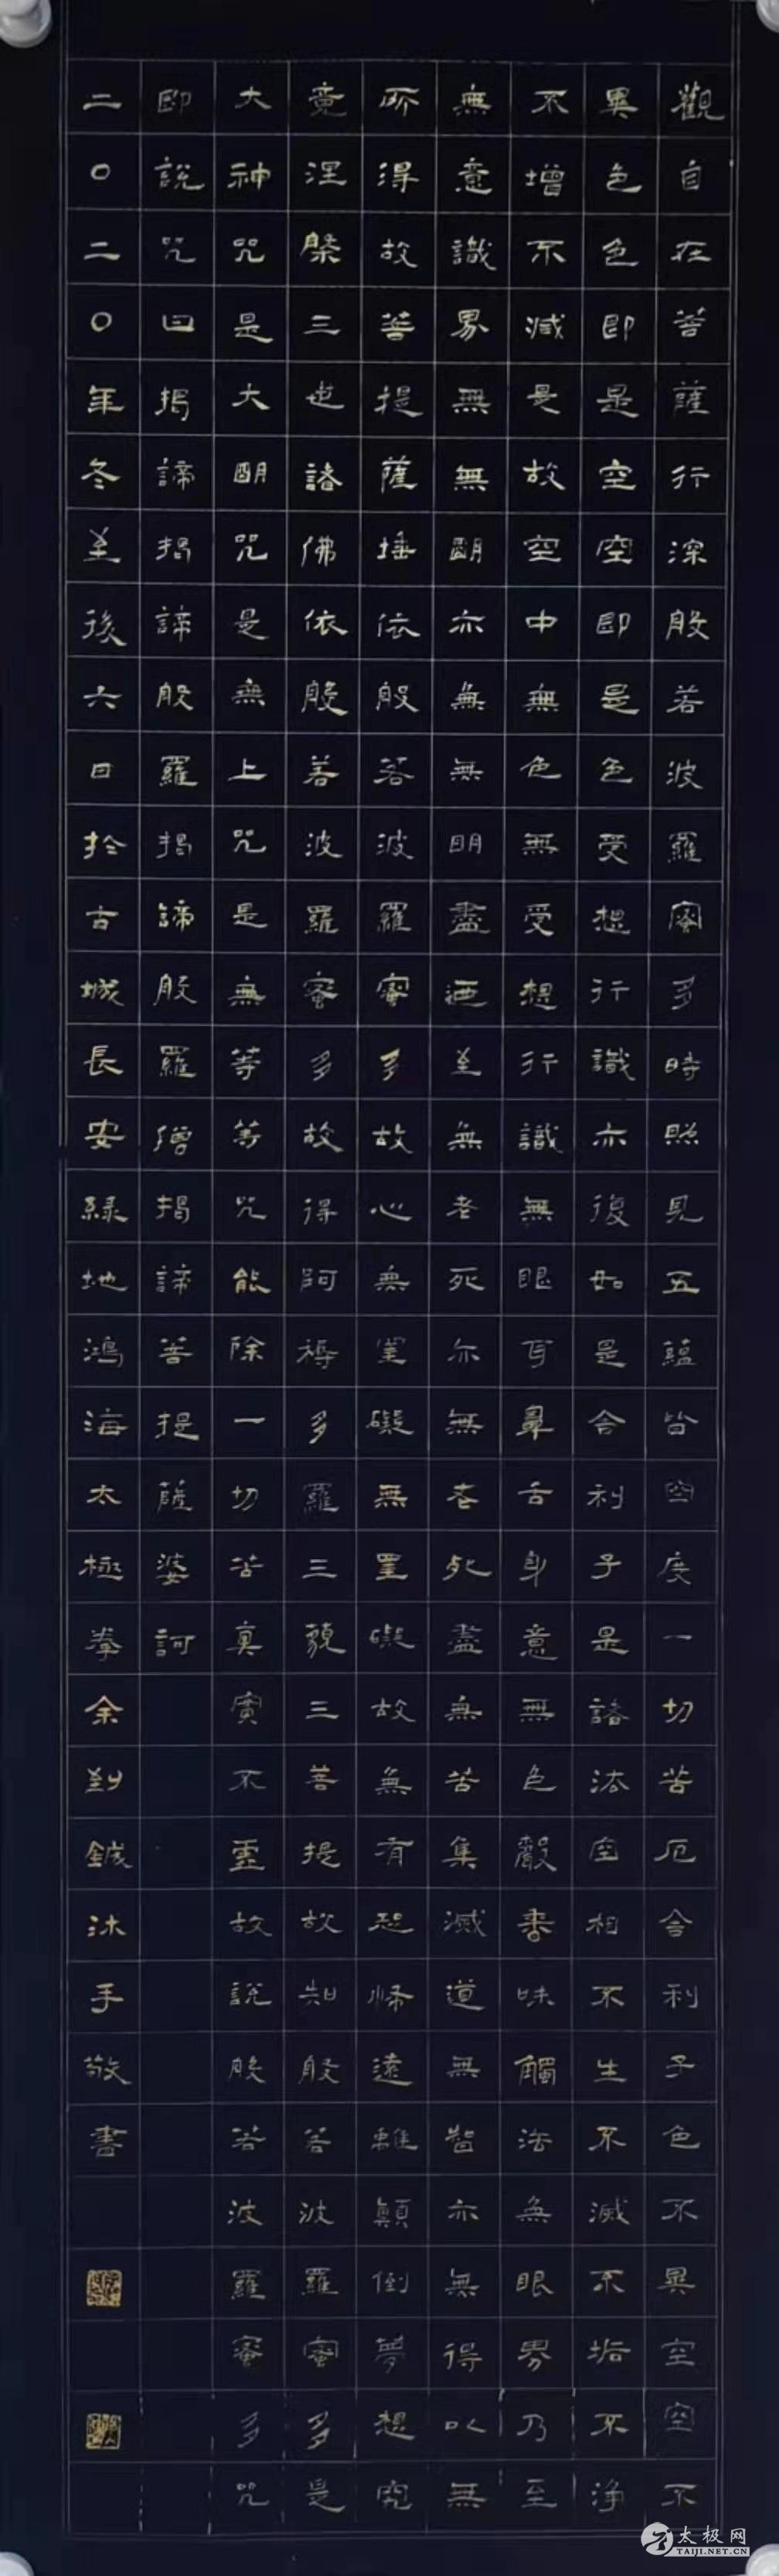 觀自在菩薩行深般若波羅蜜多時照見五蘊皆空度一切苦厄舍利子色不異空空不
異色色即是空空即是色受想行識亦復如是舍利子是諸法空相不生不滅不垢不淨
不增不減是故空中無色無受想行識無眼耳鼻舌身意無色聲香味觸法無眼界乃至
無意識界無無明亦無無明盡迺至無老死亦無老死盡無苦集滅道無智亦無得以無
所得故菩提薩埵依般若波羅蜜多故心無罣礙無罣礙故無有恐怖遠離顛倒夢想究
竟涅槃三世諸佛依般若波羅蜜多故得阿耨多羅三藐三菩提故知般若波羅蜜多是
大神咒是大明咒是無上咒是無等等咒能除一切苦真實不虛故說般若波羅蜜多咒
即說咒曰揭諦揭諦般羅揭諦般羅僧揭諦菩提薩婆訶
二〇二〇年冬至後六日於古城長安綠地鴻海太極拳余到鋮沐手敬書
太极网
TAIJI.NET.CN